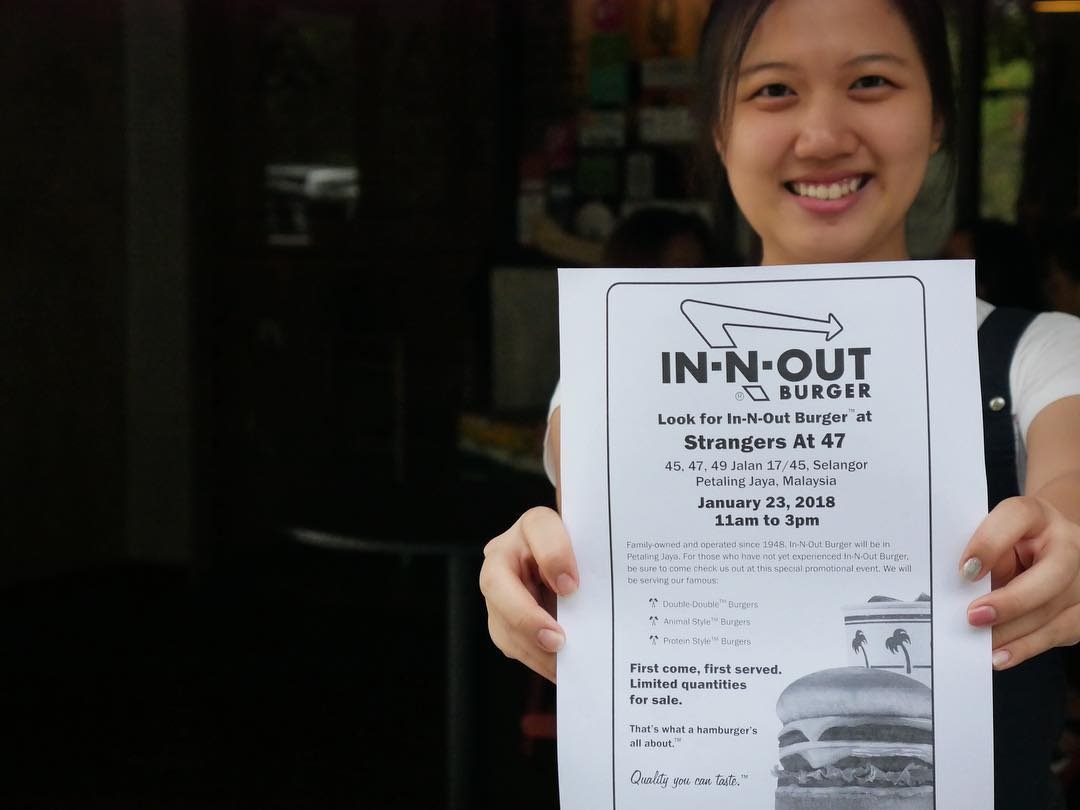 IN-N-OUT
® BURGER
Look for In-N-Out Burger™ at
Strangers At 47
45, 47, 49 Jalan 17/45, Selangor
Petaling Jaya, Malaysia
January 23, 2018
11am to 3pm
Family-owned and operated since 1948. In-N-Out Burger will be in
Petaling Jaya. For those who have not yet experienced In-N-Out Burger,
be sure to come check us out at this special promotional event. We will
be serving our famous:
Double-Double™ Burgers
Animal Style™ Burgers
Protein Style™ Burgers
First come, first served.
Limited quantities
for sale.
That's what a hamburger's
all about.™
Quality you can taste.™